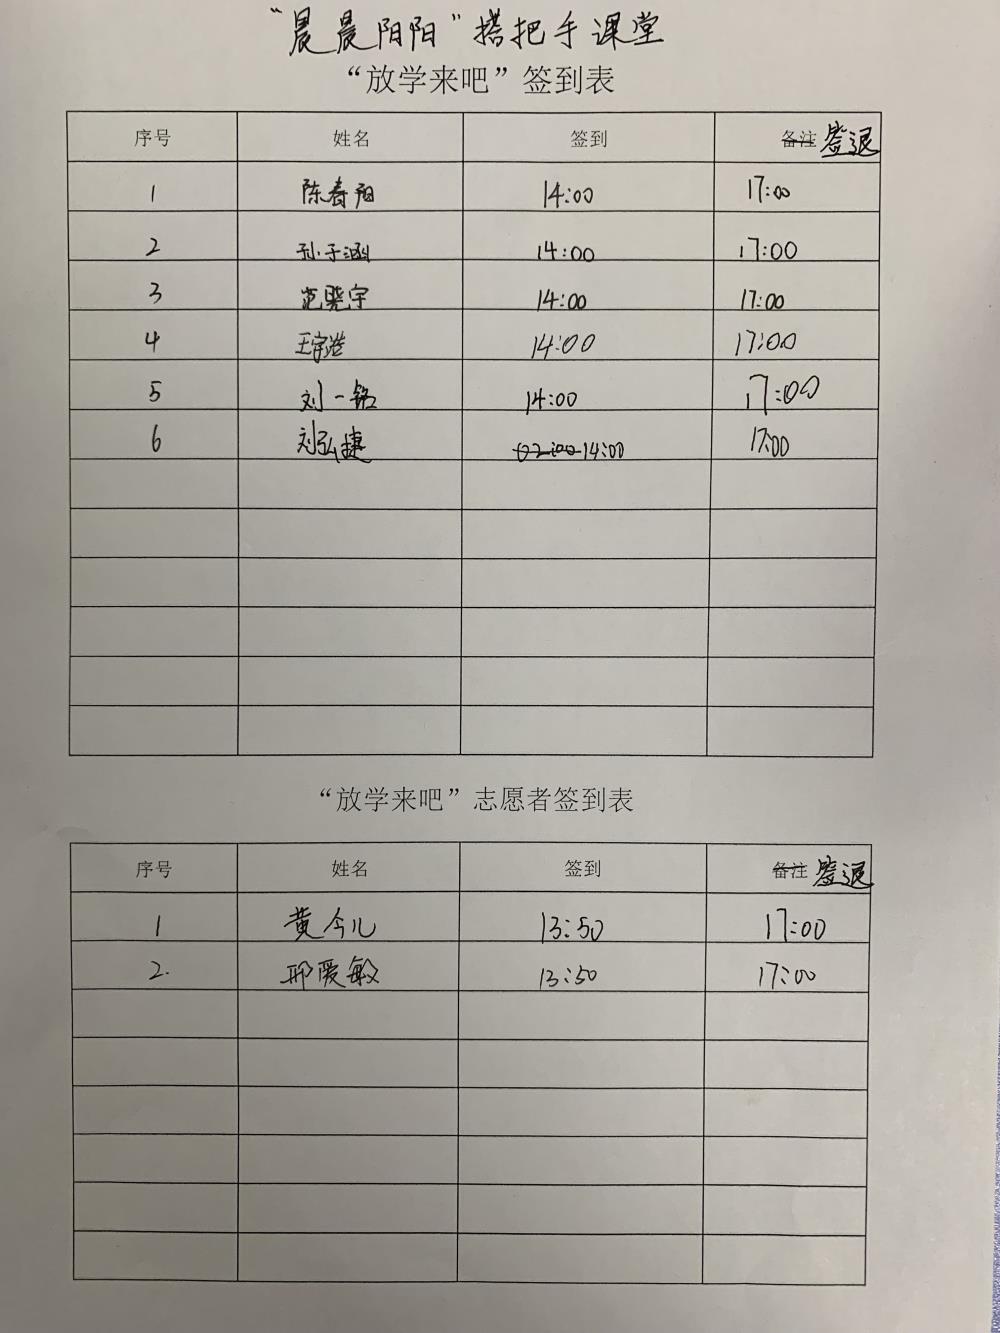 “晨晨阳阳”搭把手课堂
“放学来吧”签到表
序号 姓名 签到 备注 签退
1 陈春阳 14:00 17:00
2 孙于涵 14:00 17:00
3 范晓宇 14:00 17:00
4 王宇浩 14:00 17:00
5 刘一铭 14:00 17:00
6 刘弘捷 02:00 14:00 17:00
“放学来吧”志愿者签到表
序号 姓名 签到 备注 签退
1 黄今儿 13:50 17:00
2. 邢爱敏 13:50 17:00